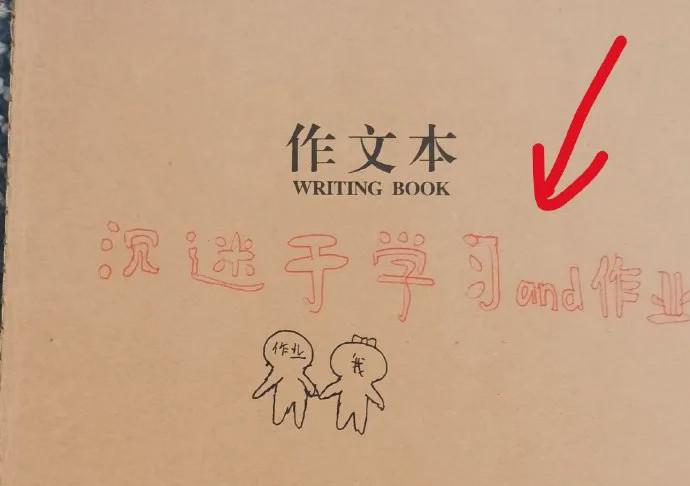 作文本
WRITING BOOK
沉迷于学习and作业
作业
我